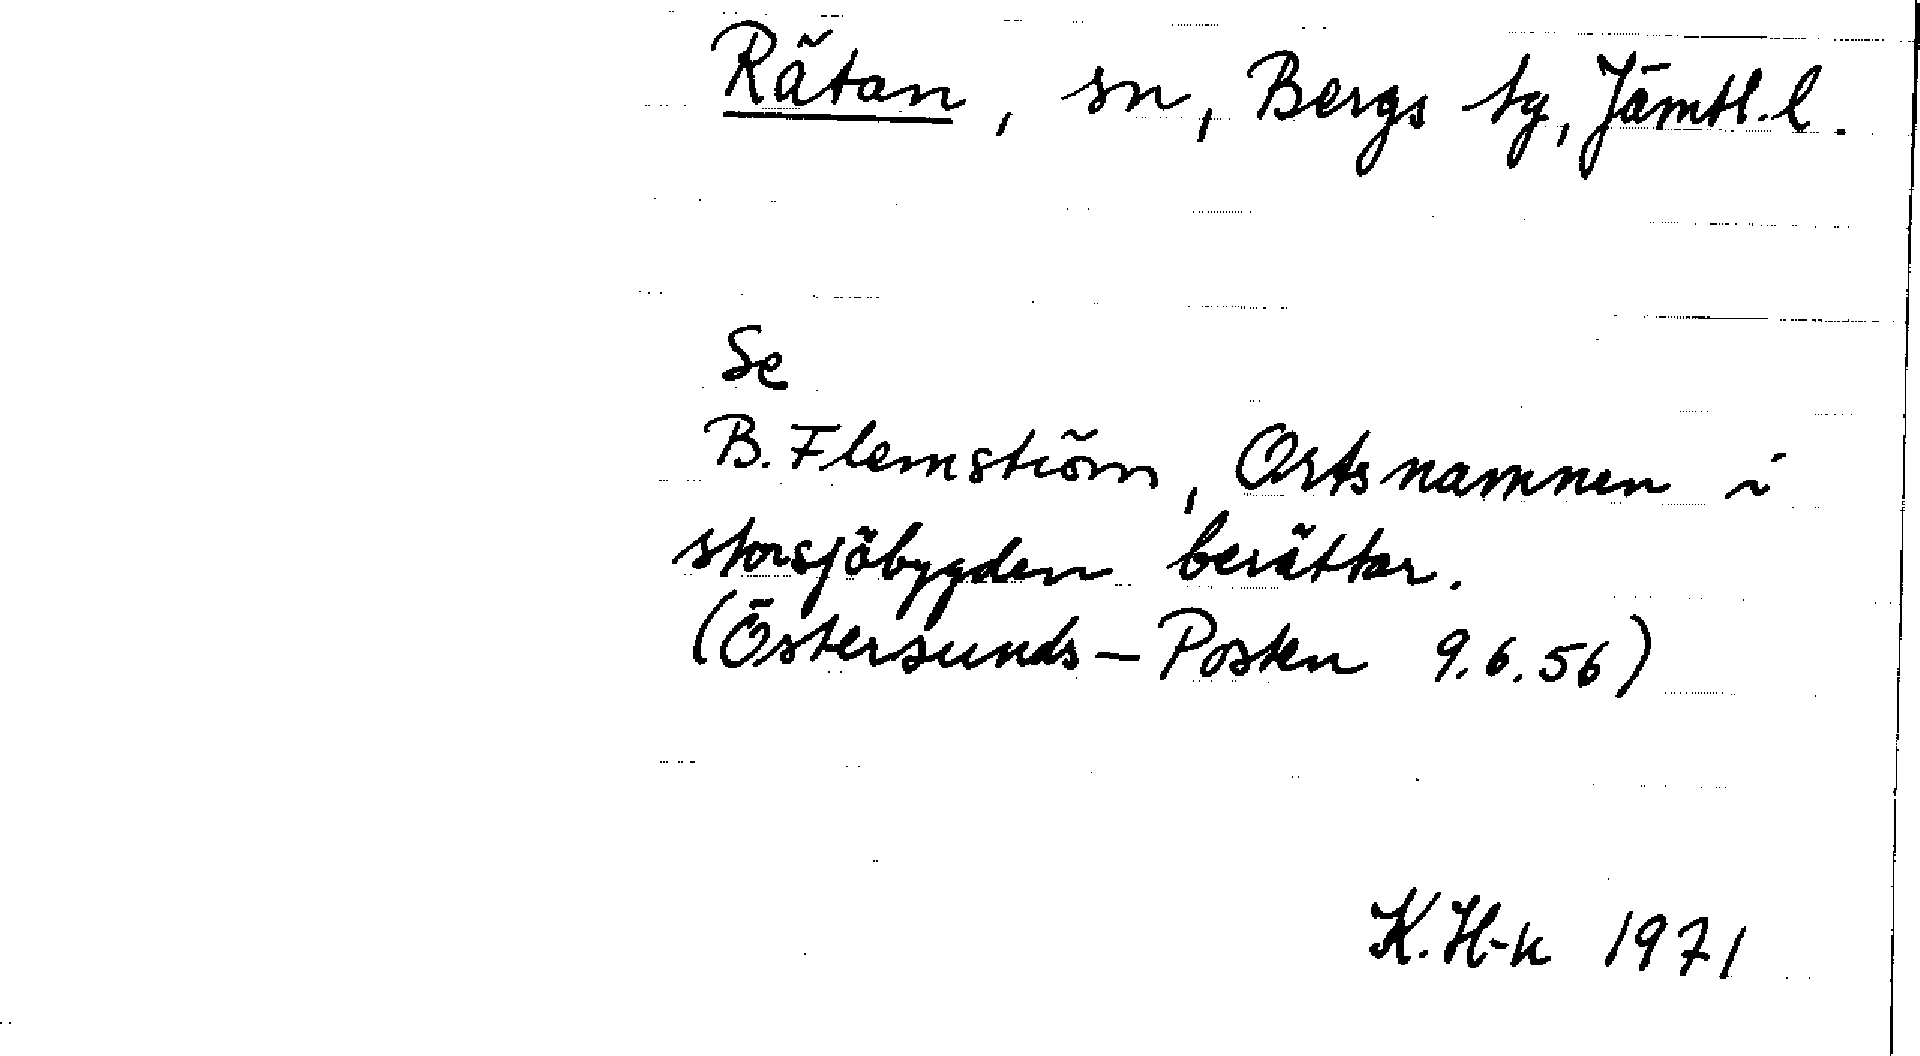 Rätan, sn, Bergs tg, Jämtl. l.
Se
B. Flemström, Ortsnamnen i
storsjöbygden berättar.
(Östersunds-Posten 9.6.56)
K. H-k 1971